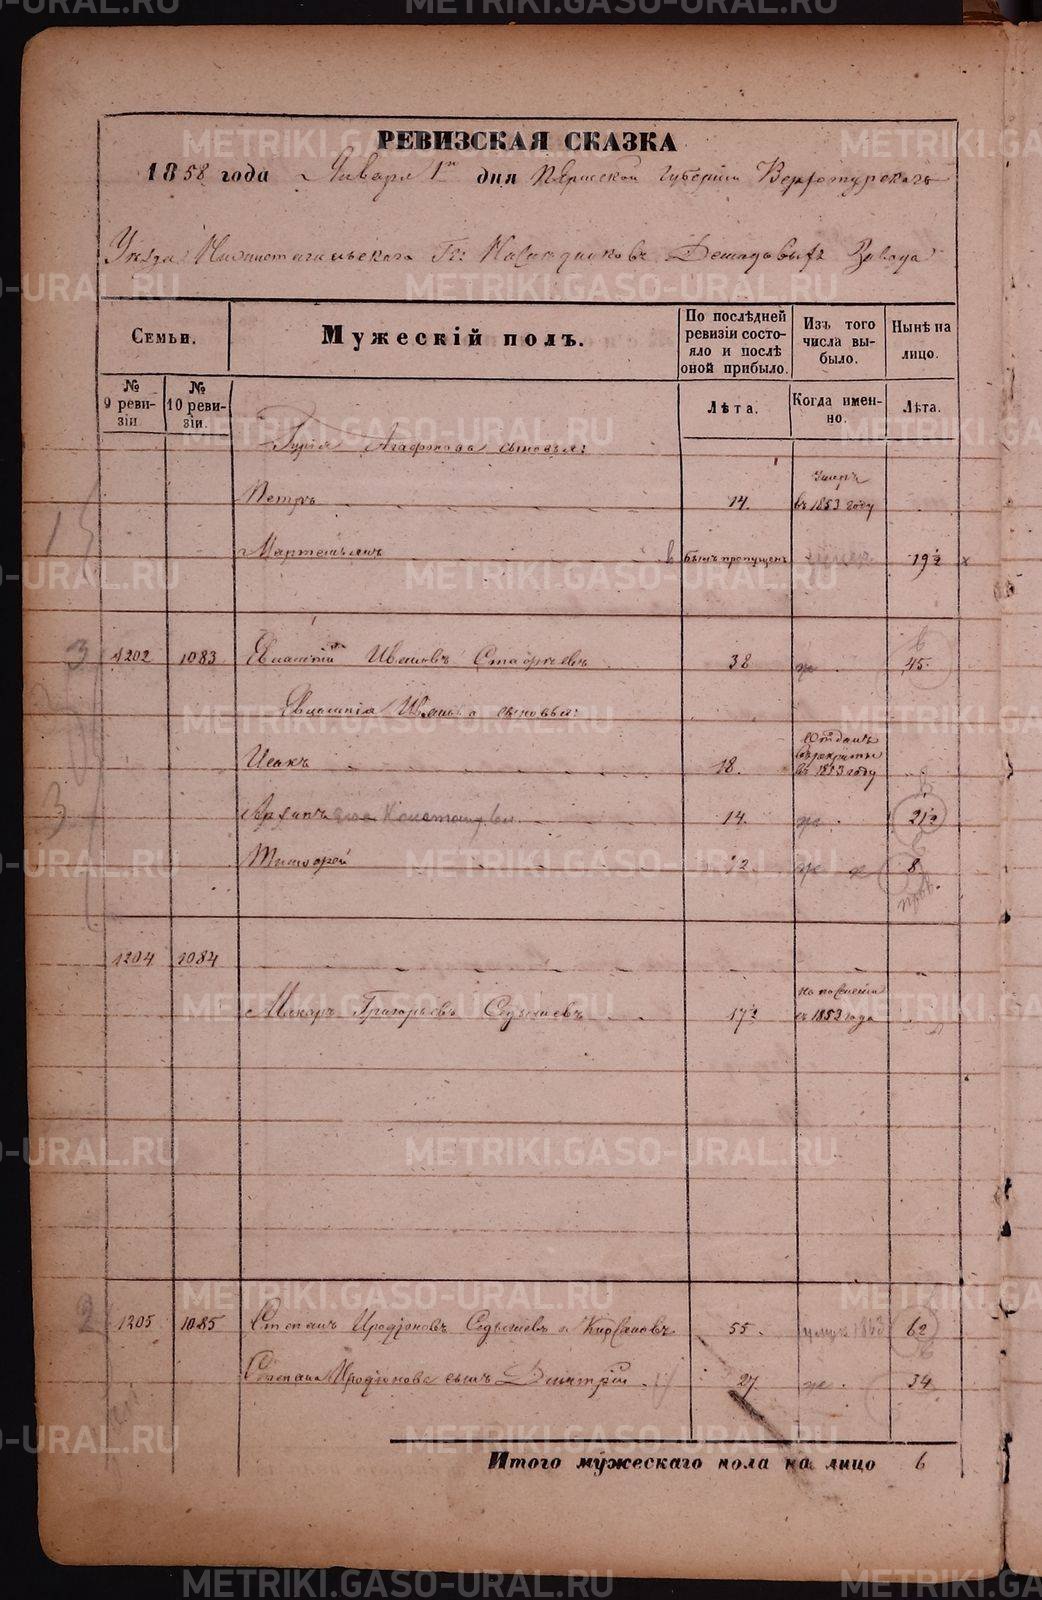 РЕВИЗСКАЯ СКАЗКА
1858 года Января 1го дня Пермской Губернии Верхотурскаго
Уѣзда Нижнотагильскаго Гг: Наслѣдниковъ Демидовыхъ Завода
Семьи.
Мужескій полъ.
По послѣдней ревизіи состояло и послѣ оной прибыло.
Изъ того числа выбыло.
Нынѣ на лицо.
№ 9 ревизіи
№ 10 ревизіи.
Лѣта.
Когда именно.
Лѣта.
Гурія Агафонова сыновья:
Петръ 14. умеръ въ 1853 году
1
Мартемьянъ былъ пропущенъ 19½
3 1202 1083 Иванъ Ивановъ 38 45.
Иванова сыновья:
Исакъ 18. Отданъ въ рекруты въ 1853 году
3 Архипъ 14. 21½
Тимофей ½. 8
1204 1084
Макаръ Григорьевъ 17½ на поселеніи съ 1852 года
2 1205 1085 Степанъ Иродіоновъ Кирсановъ 55. 1863 62
Степана Иродіонова сынъ Дмитрій 27. 34
Итого мужескаго пола на лицо 6
METRIKI.GASO-URAL.RU